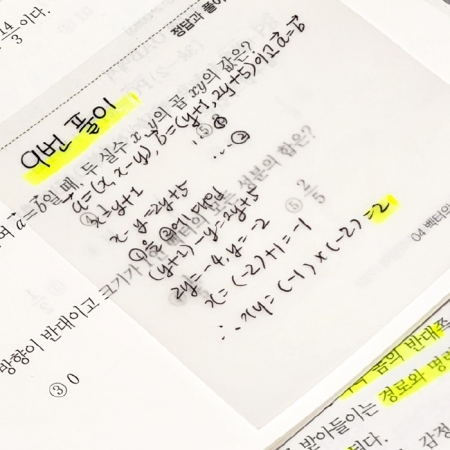 14/3 이다.
정답과 풀이
9번 풀이
a⃗=b⃗일 때, 두 실수 x, y의 곱 xy의 값은?
a⃗=(x, x-y), b⃗=(y+1, 2y+5)이고 a⃗=b⃗
x=y+1 … ①
x-y=2y+5 … ②
①을 ②에 대입
(y+1)-y=2y+5
2y=-4, y=-2
x=(-2)+1=-1
∴ xy=(-1)×(-2)=2
크기가
성분의 합은?
⑤ 2/5
방향이 반대이고
③ 0
04 벡터의
반대쪽
받아들이는 경로와
된다.
감정